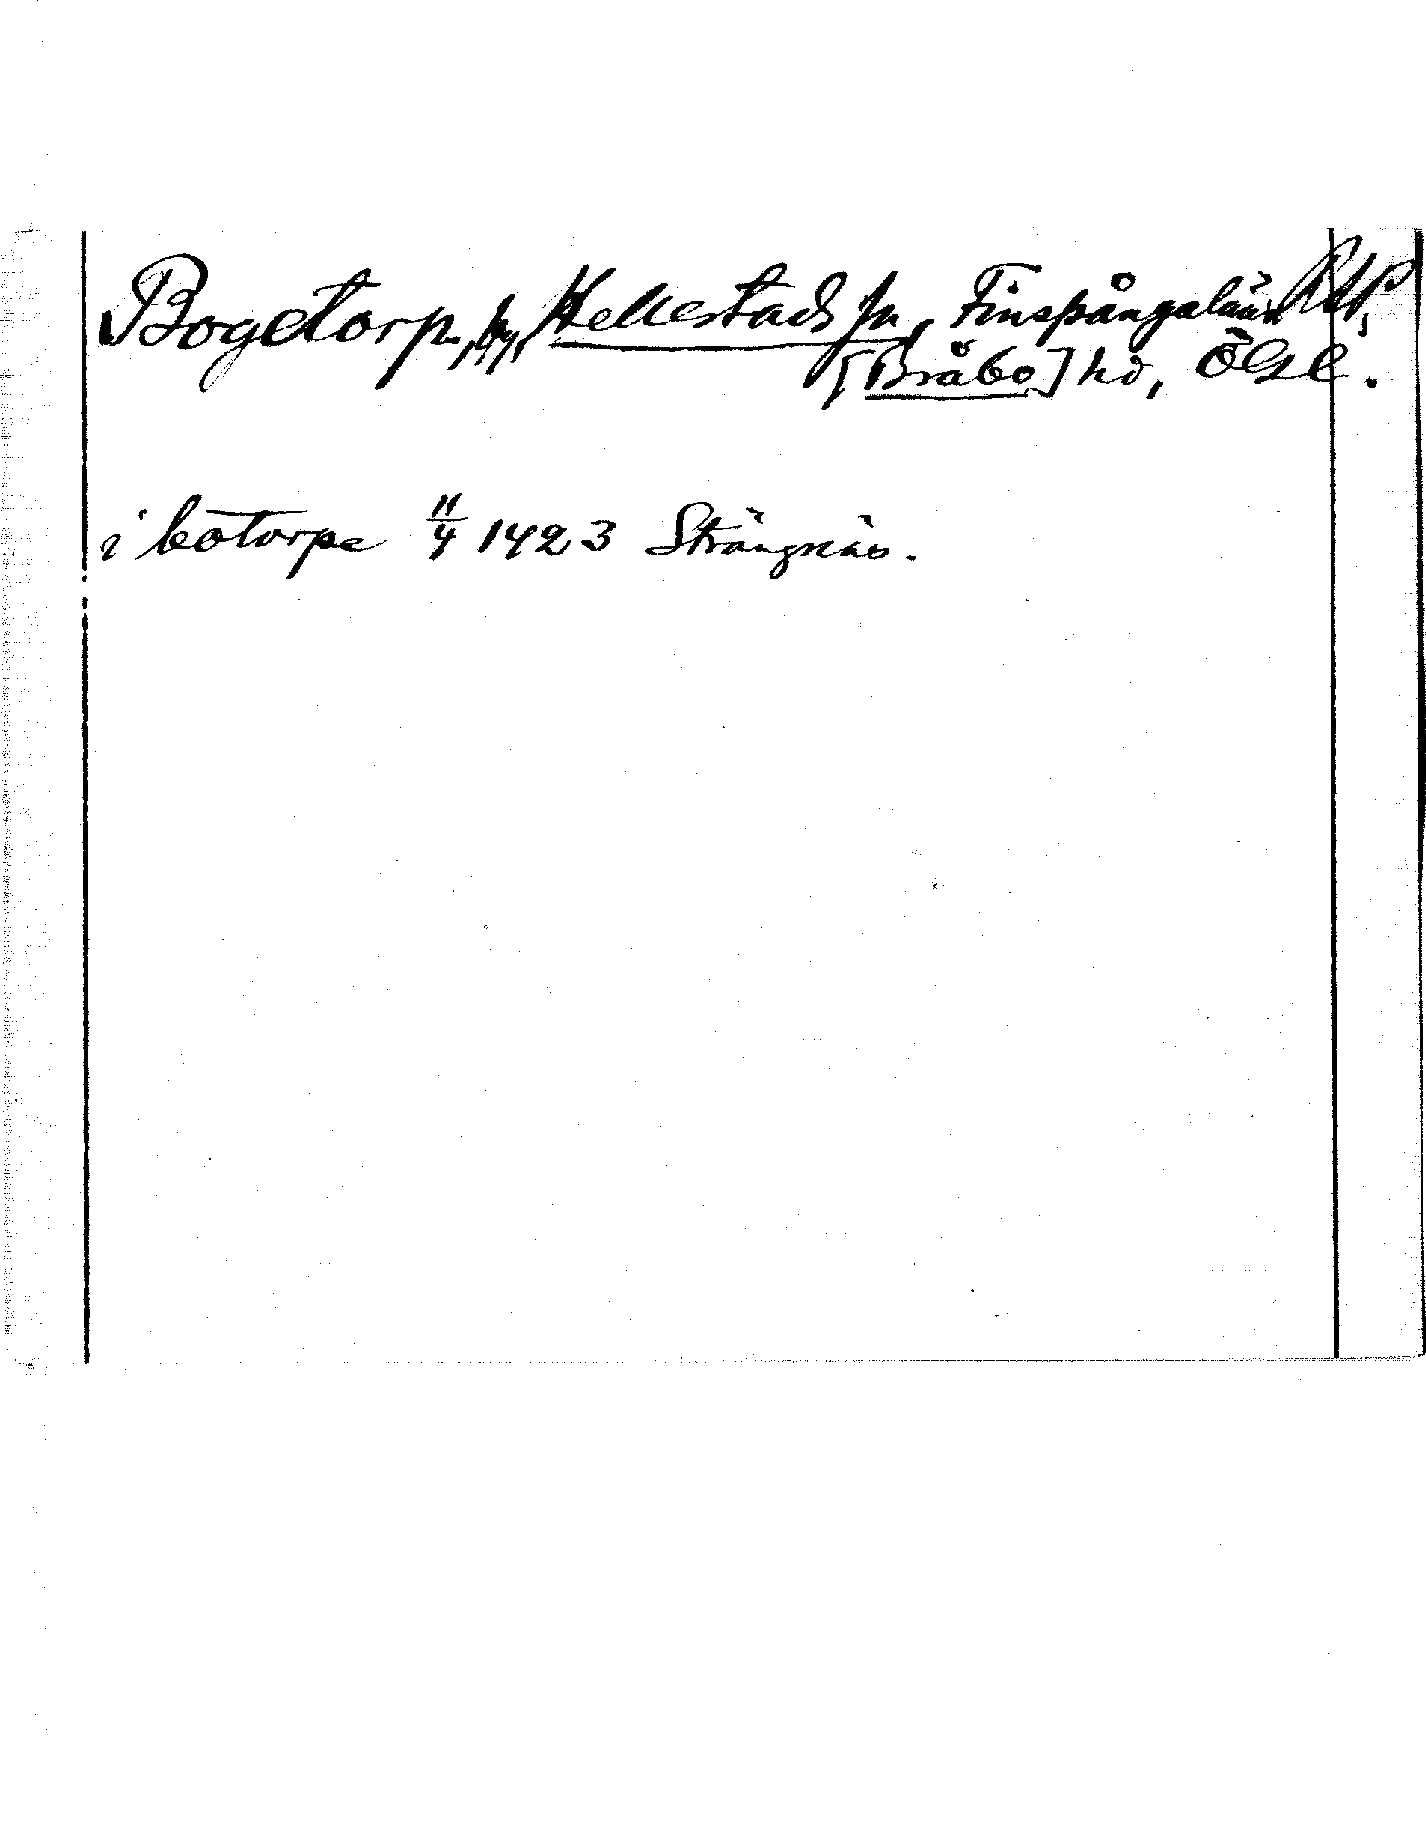 Bogetorp, by, Hellestads sn, Finspångalän RAP,
[Bråbo] hd, Ögl.
i botorpe 11/4 1423 Strängnäs.